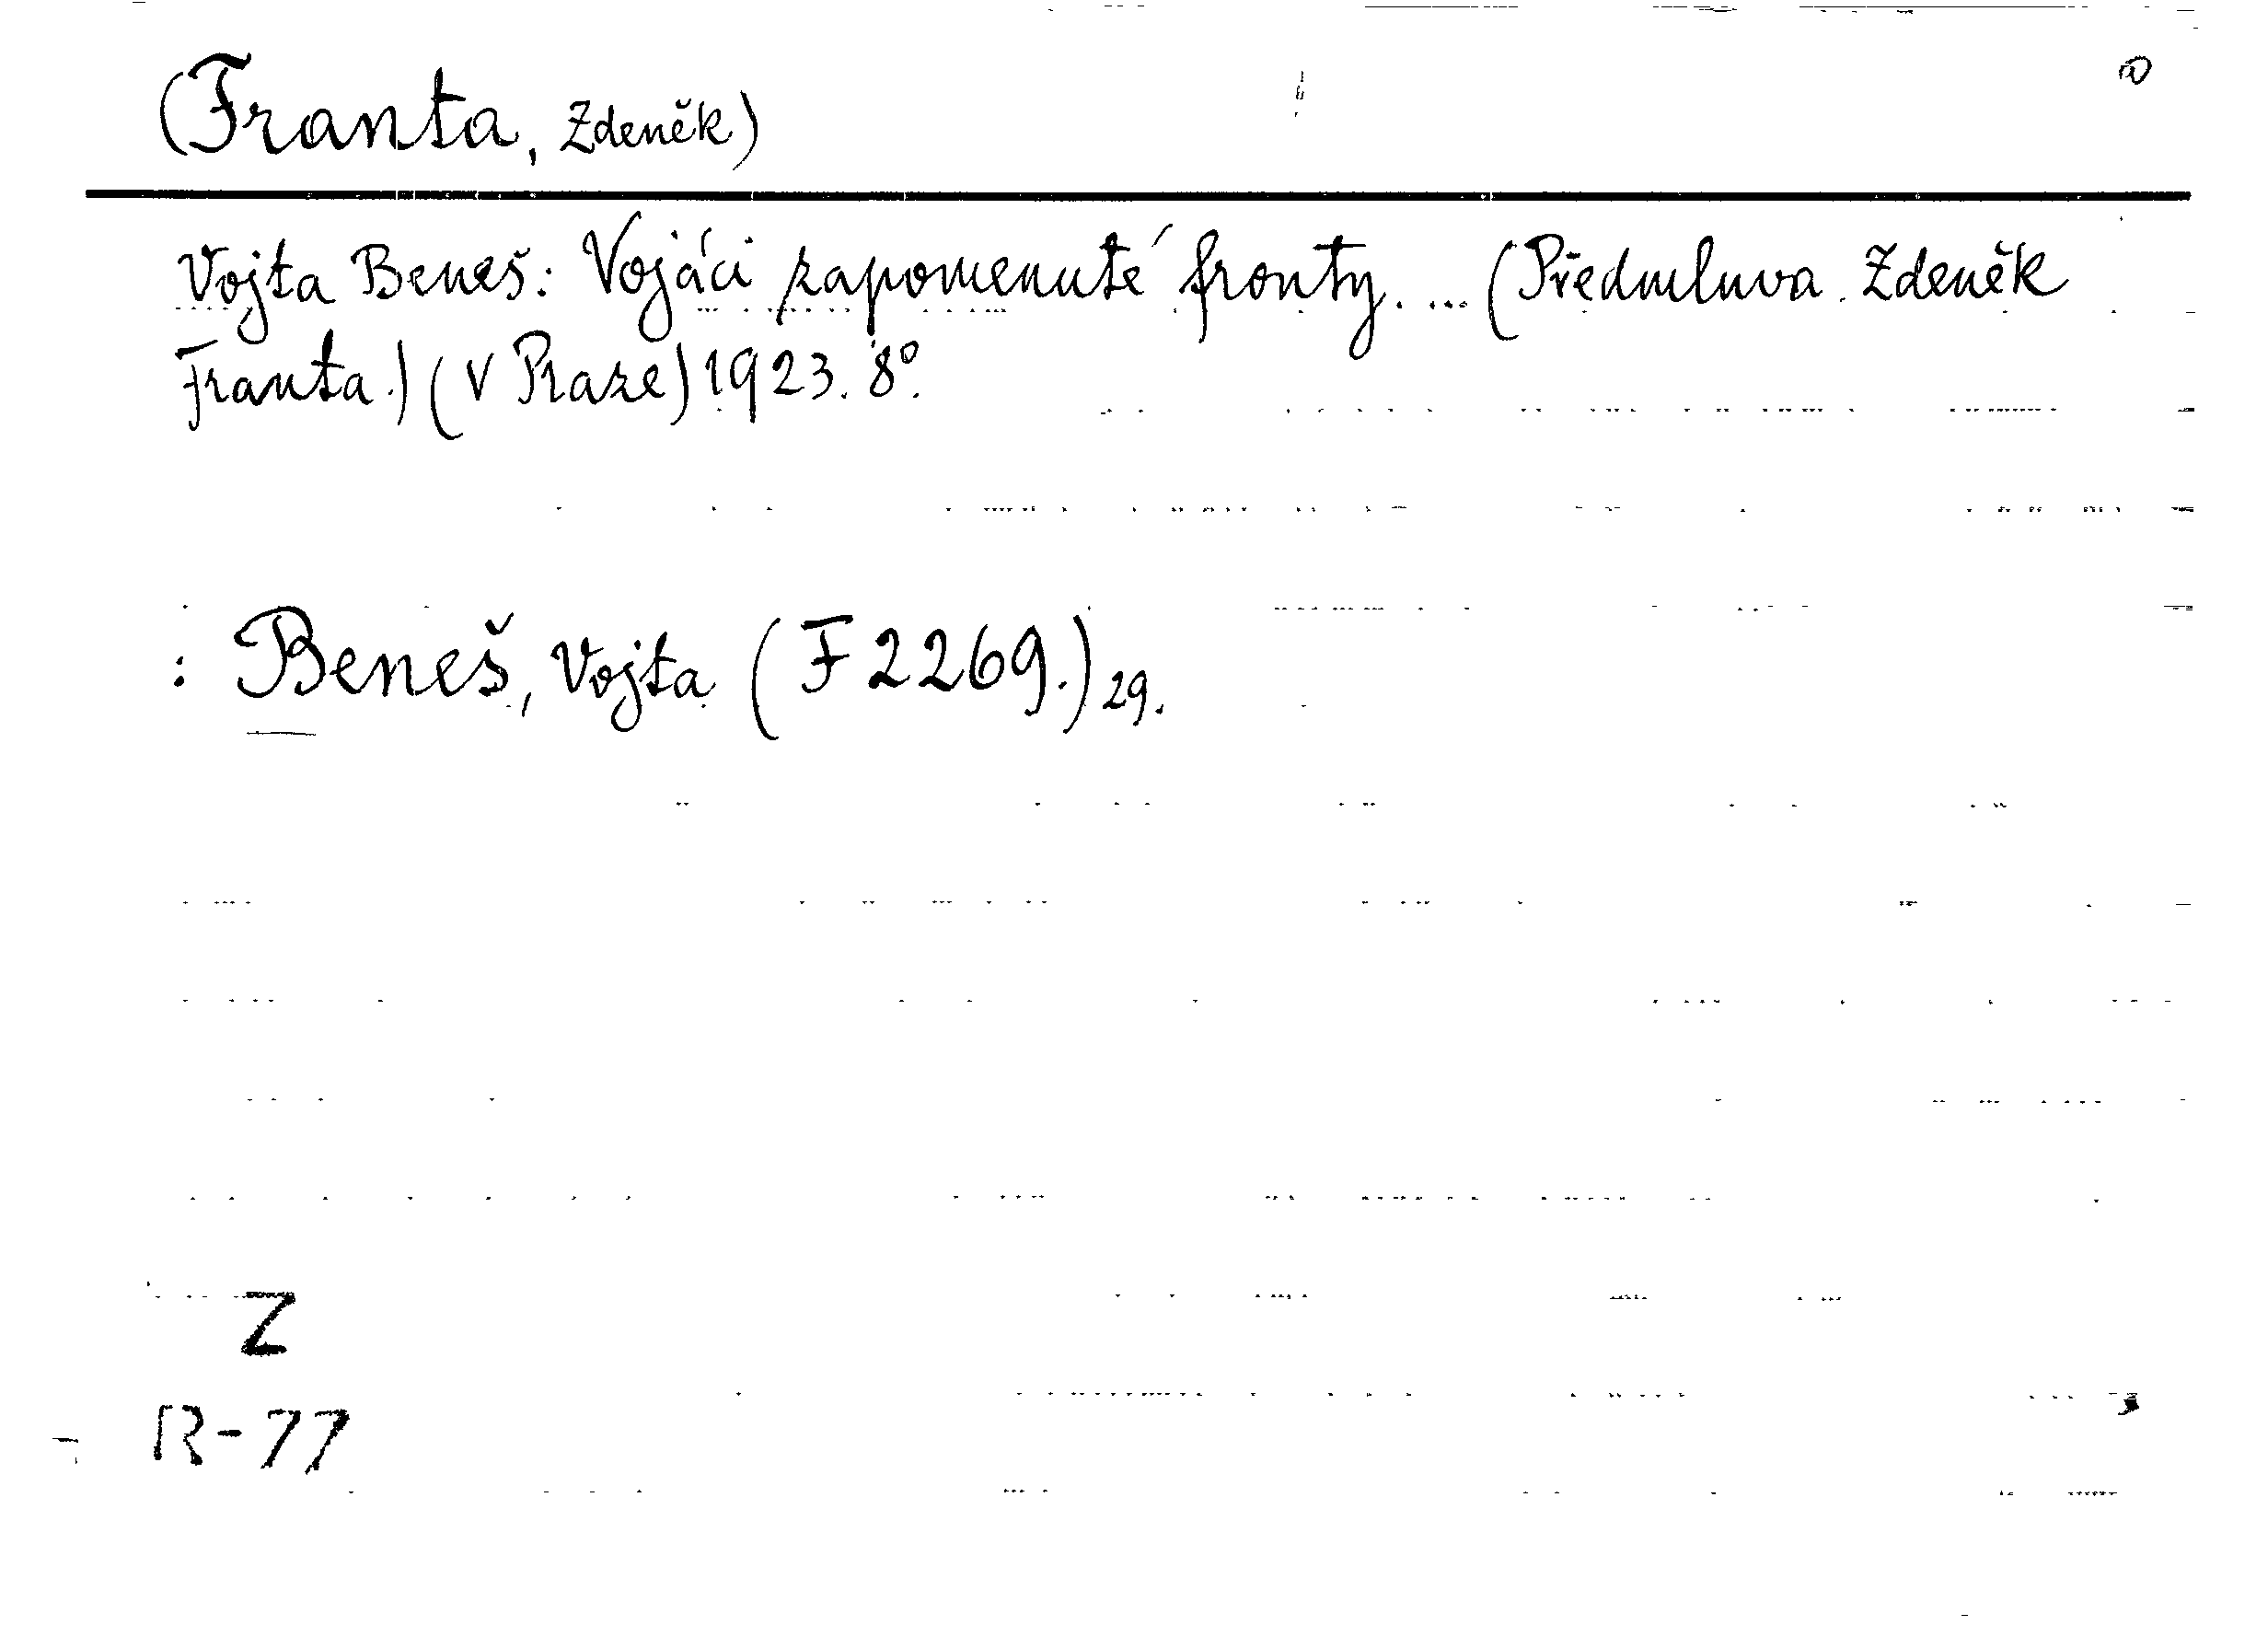 (Franta, Zdeněk)
Vojta Beneš: Vojáci zapomenuté fronty. ... (Předmluva. Zdeněk
Franta.) (V Praze) 1923. 8°.
: Beneš, Vojta (F 2269.) 29.
Z
R-77